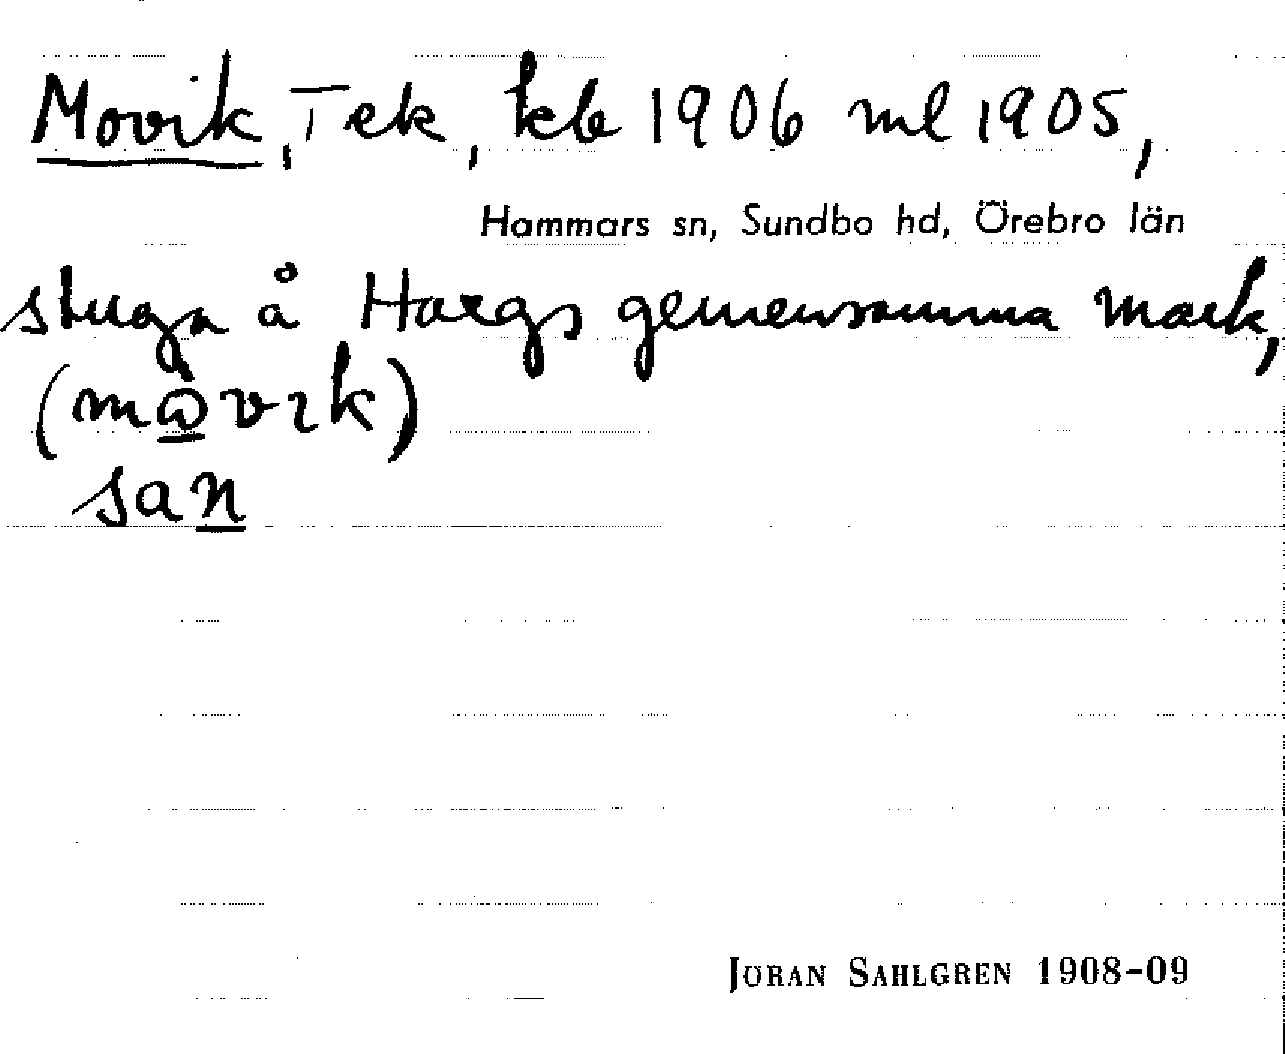 Movik, Tek, kb 1906 ml 1905,
Hammars sn, Sundbo hd, Örebro län
stuga å Hargs gemensamma mark,
(
san
JÖRAN SAHLGREN 1908-09